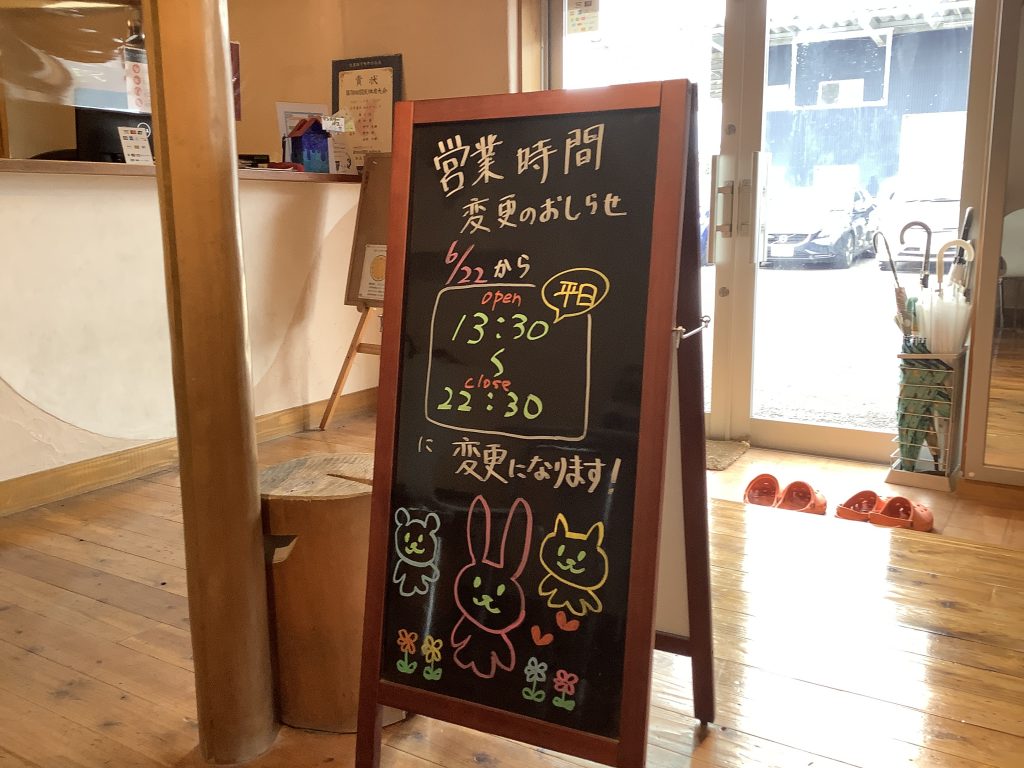 賞状
営業時間
変更のおしらせ
6/22から
平日
open
13:30
〜
close
22:30
に変更になります!